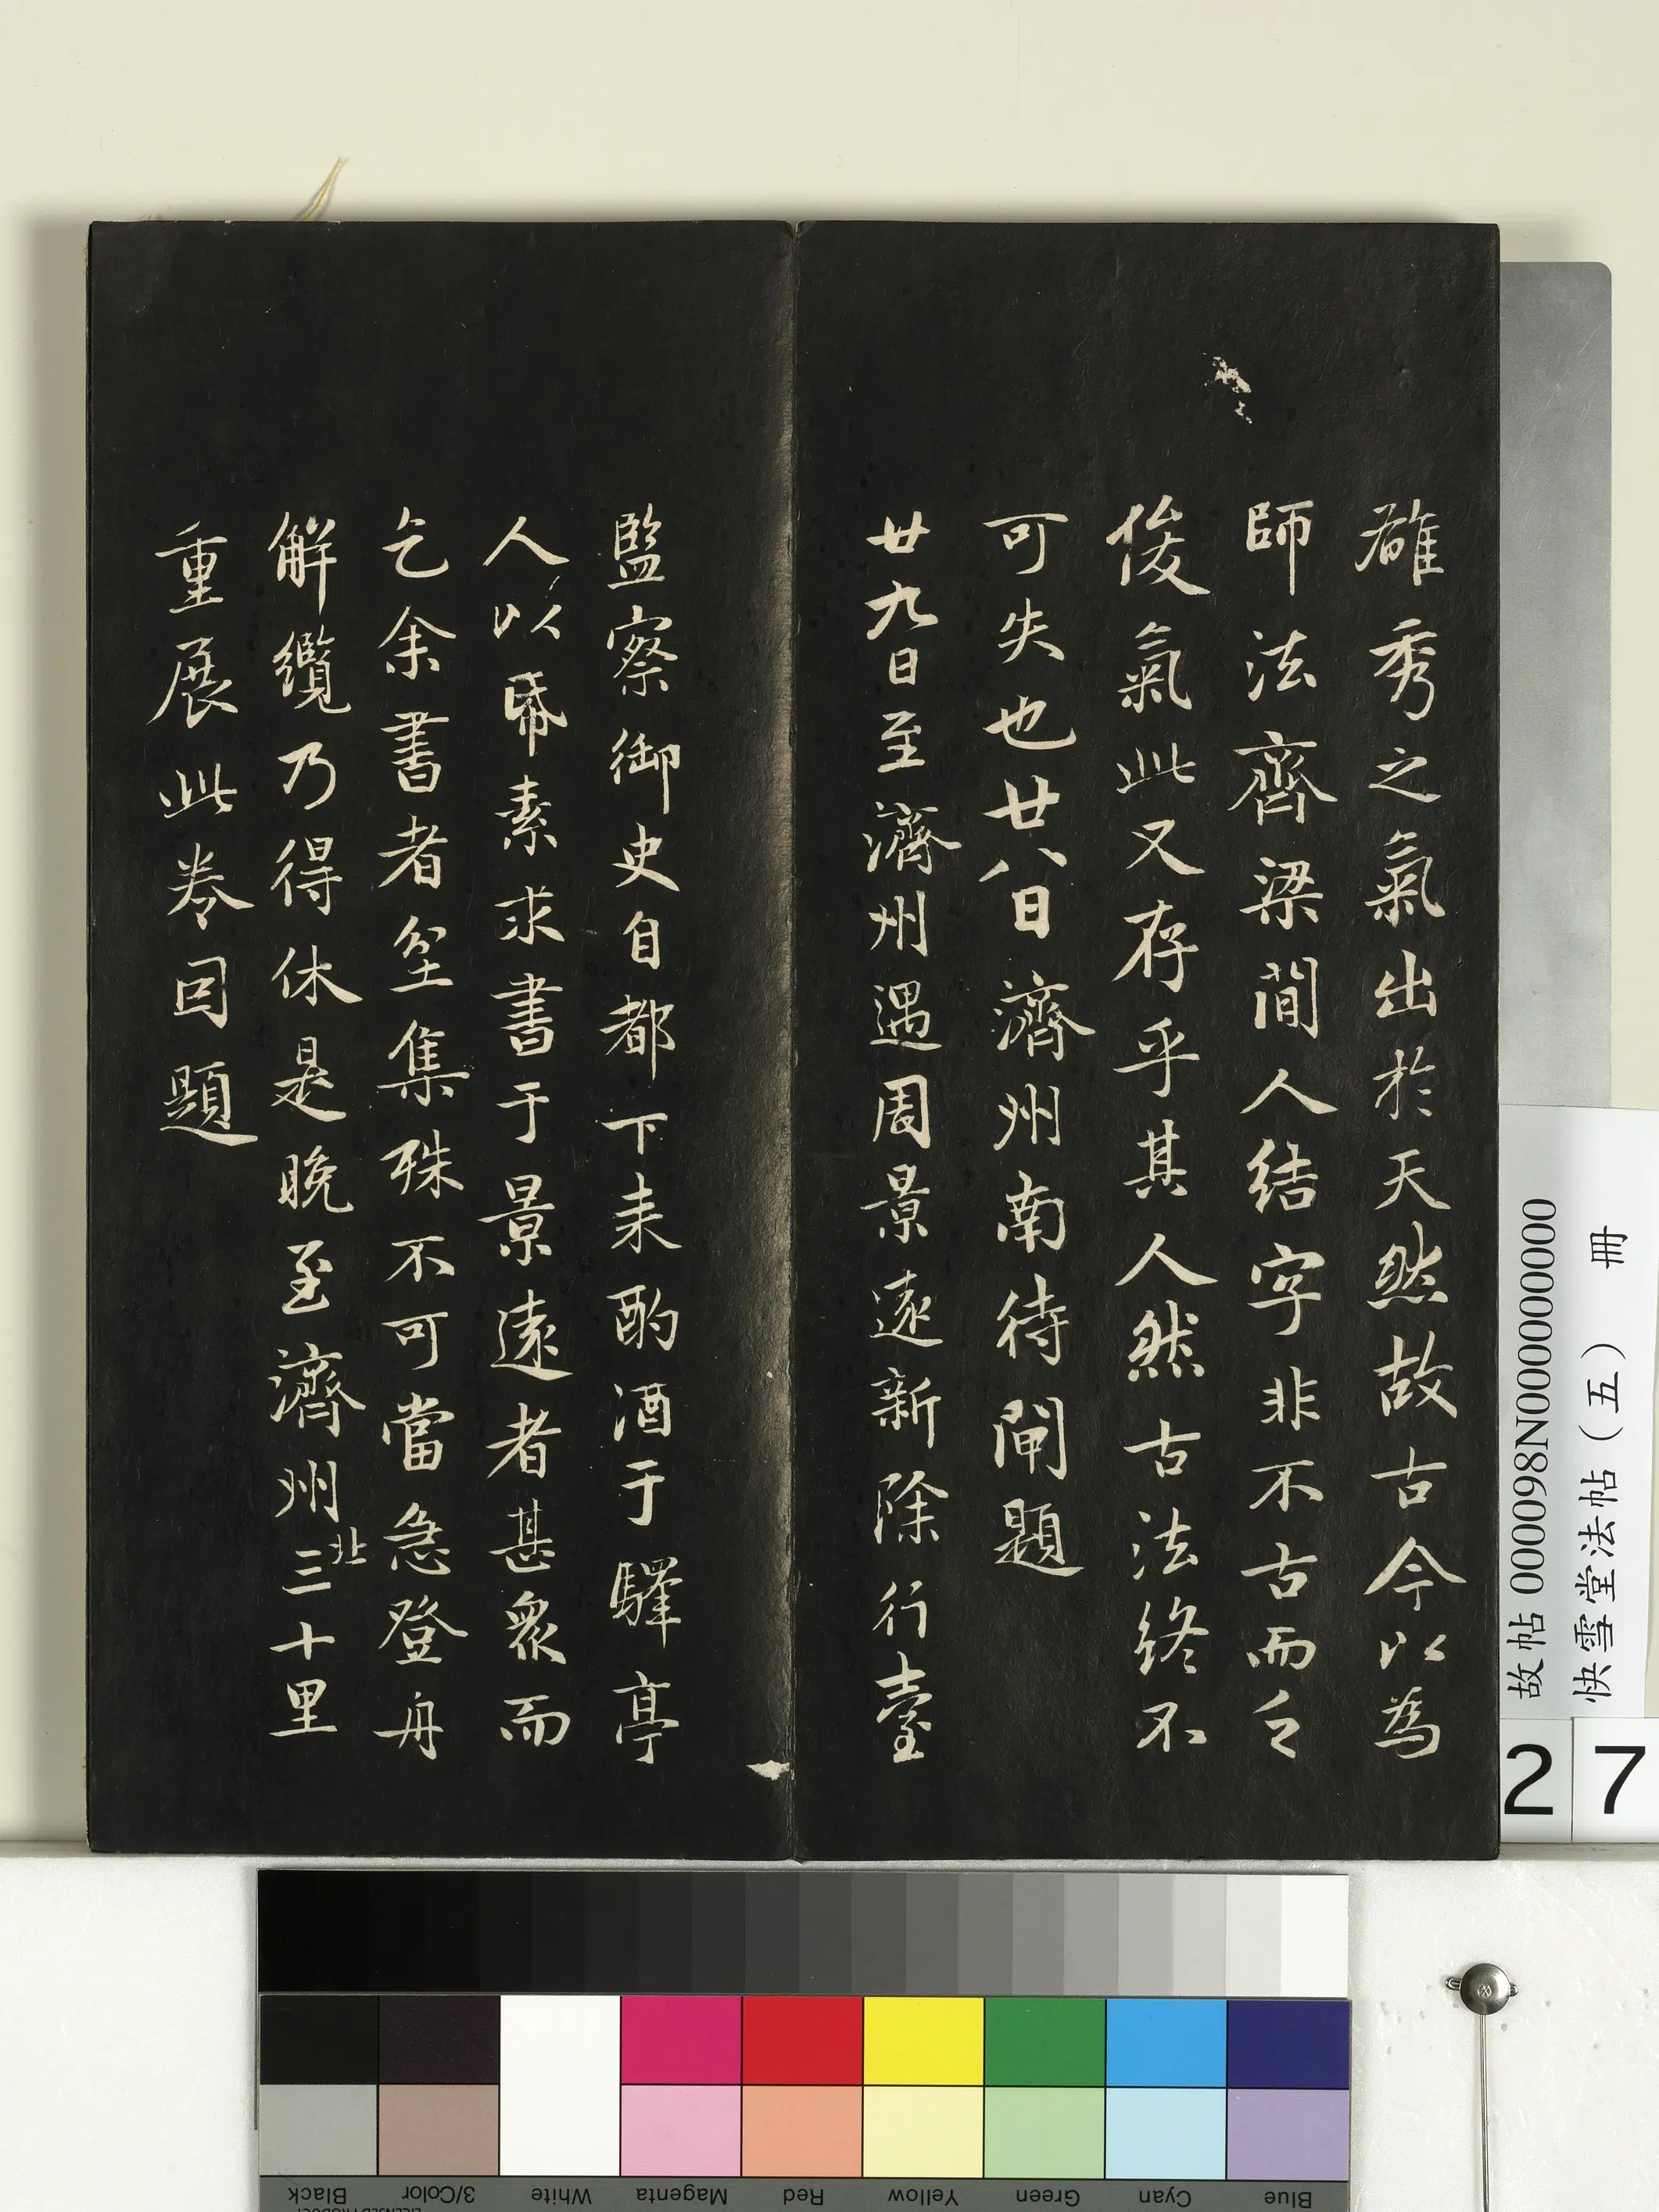 雄秀之氣出於天然故古今以為
師法齊梁間人結字非不古而乏
俊氣此又存乎其人然古法終不
可失也廿八日濟州南待閘題
廿九日至濟州遇周景遠新除行臺
監察御史自都下来酌酒于驛亭
人以帋素求書于景遠者甚衆而
乞余書者坌集殊不可當急登舟
解纜乃得休是晚至濟州北三十里
重展此卷因題
故帖 000098N000000000
快雪堂法帖（五） 冊
2 7
Black
3/Color
White
Magenta
Red
Yellow
Green
Cyan
Blue